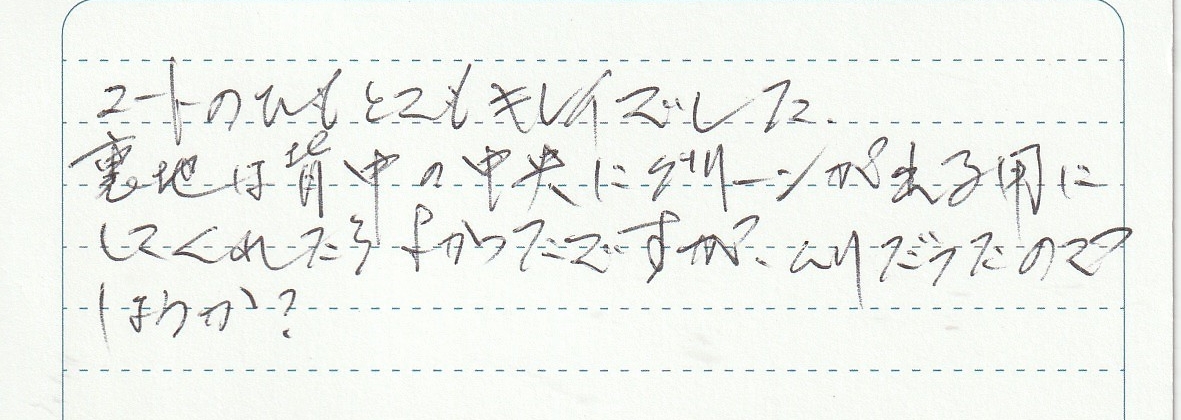 コートのひもとてもキレイでした。
裏地は背中の中央にグリーンが来る用に
してくれたらよかったですが、ムリだったので
しょうか?